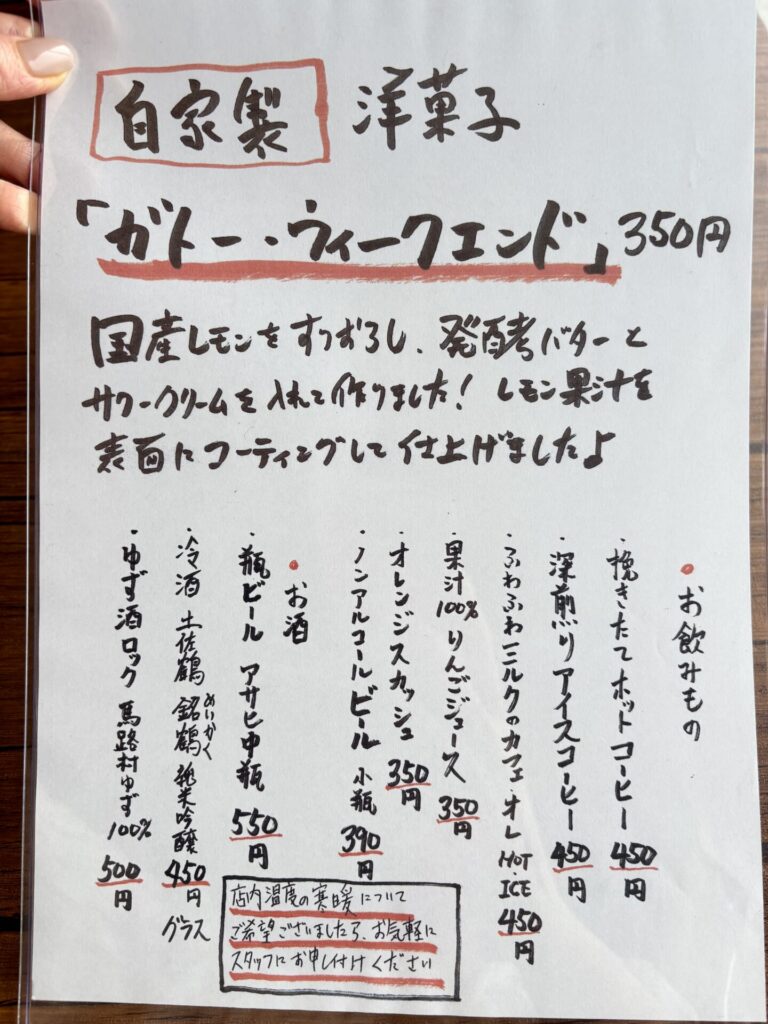 自家製 洋菓子
「ガトー・ウィークエンド」350円
国産レモンをすりおろし、発酵バターと
サワークリームを入れて作りました！ レモン果汁を
表面にコーティングして仕上げました♪
・お飲みもの
・挽きたてホットコーヒー 450円
・深煎りアイスコーヒー 450円
・ふわふわミルクのカフェ・オレ HOT・ICE 450円
・果汁100%りんごジュース 350円
・オレンジスカッシュ 350円
・ノンアルコールビール 小瓶 390円
・お酒
・瓶ビール アサヒ中瓶 550円
・冷酒 土佐鶴 銘鶴 純米吟醸 450円 グラス
めいかく
・ゆず酒ロック 馬路村ゆず100% 500円
店内温度の寒暖について
ご希望ございましたら、お気軽に
スタッフにお申し付けください